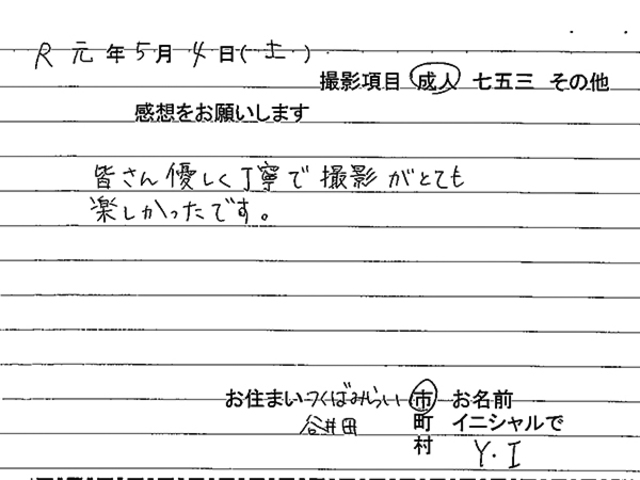 R 元 年 5 月 4 日( 土 )
撮影項目 成人 七五三 その他
感想をお願いします
皆さん優しく丁寧で撮影がとても
楽しかったです。
お住まい つくばみらい 市 お名前
谷井田 町 イニシャルで
村 Y.I